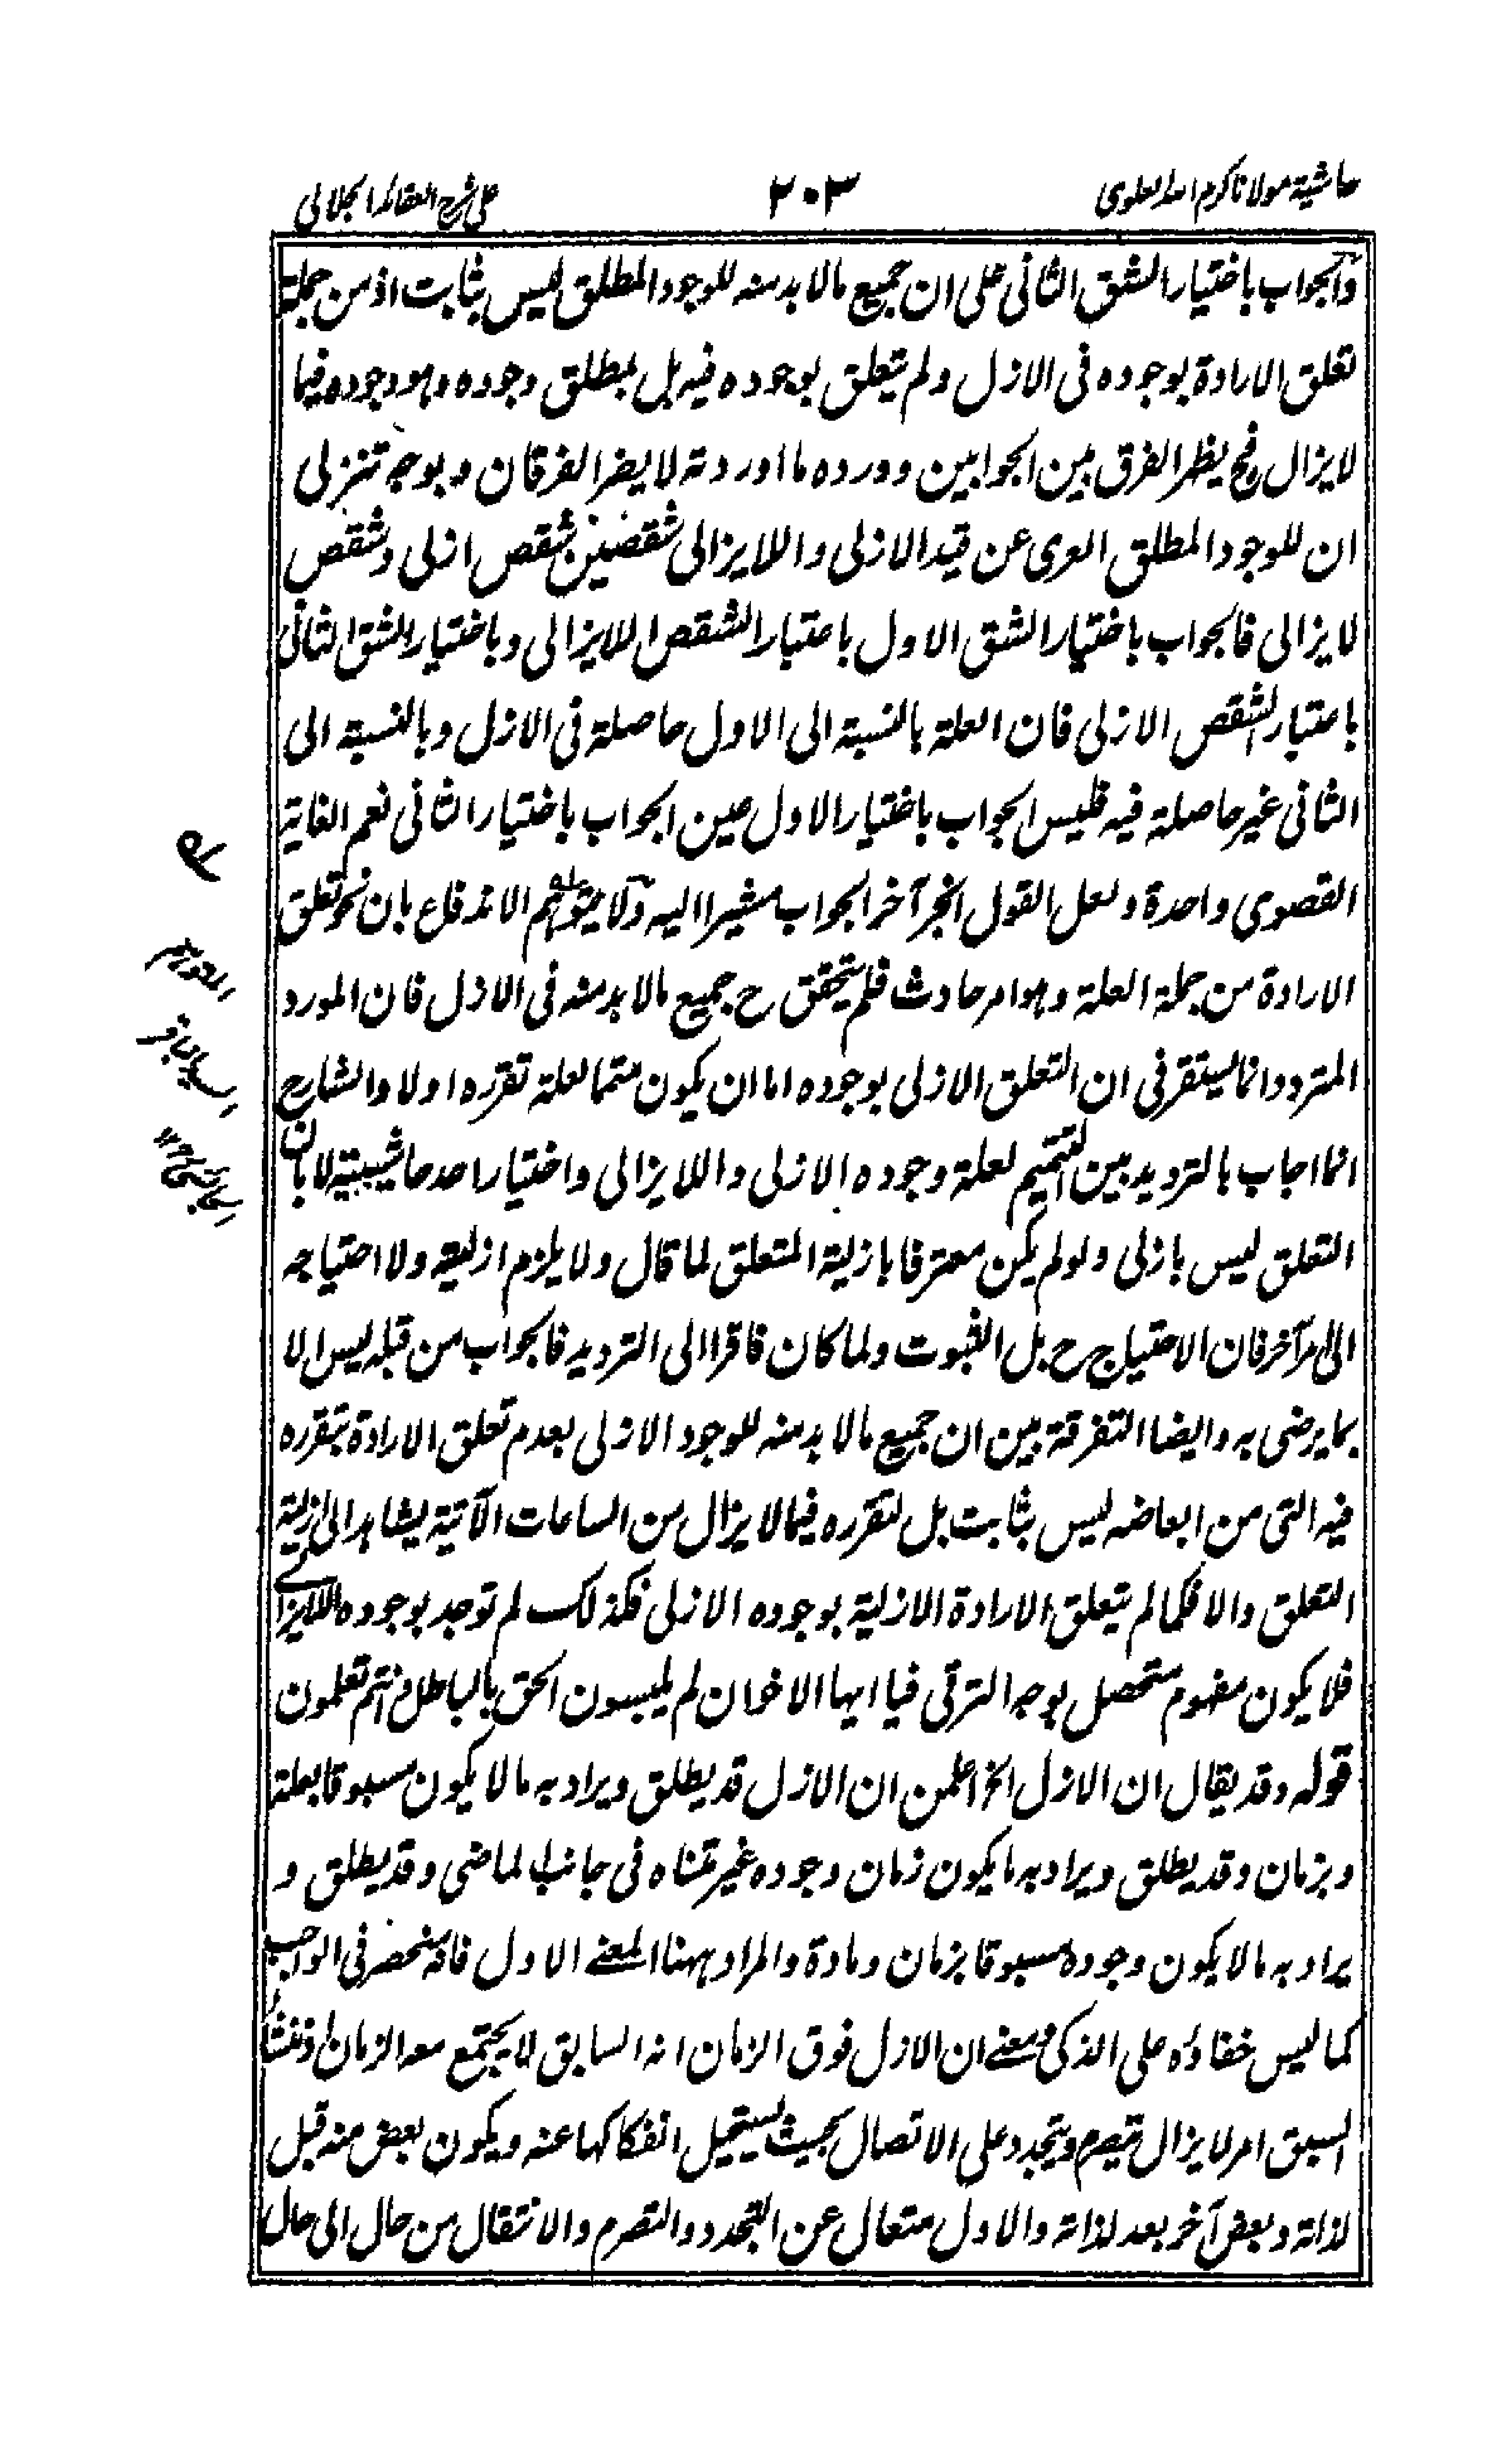 حاشية مولانا كرم الله العلوى
٢٠٣
على شرح العقائد الجلالى
والجواب باختيار الشق الثانى على ان جميع مالا بد منه للوجود المطلق ليس بثابت اذ من جملة
تعلق الارادة بوجوده فى الازل ولم يتعلق بوجوده فيه بل بمطلق وجوده وهو وجوده فيما
لايزال فح يظر الفرق بين الجوابين وورده ما اوردته لا يضر الفرقان وبوجه تنزلى
ان للوجود المطلق العرى عن قيد الازلى واللايزالى شقصين شقص ازلى وشقص
لايزالى فالجواب باختيار الشق الاول باعتبار الشقص اللايزالى وباختيار الشق الثانى
باعتبار الشقص الازلى فان العلة بالنسبة الى الاول حاصلة فى الازل وبالنسبة الى
الثانى غير حاصلة فيه فليس الجواب باختيار الاول عين الجواب باختيار الثانى نعم الغاية
القصوى واحدة ولعل القول الخ آخر الجواب مشيرا اليه ولا يتوهم الاندفاع بان نحو تعلق
الارادة من جملة العلة وهو امر حادث فلم يتحقق ح جميع مالا بد منه فى الازل فان المورد
المتردد انما يستقر فى ان التعلق الازلى بوجوده اما ان يكون متمما لعلة تقرره اولا والشارح
انما اجاب بالترديد بين التتميم لعلة وجوده الازلى واللايزالى واختيار احد حاشيبيته لا بان
التعلق ليس بازلى ولو لم يكن معترفا بازلية المتعلق لما قال ولا يلزم ازليته ولا احتياجه
الى امر آخر فان الاحتياج ح بل الثبوت ولما كان فاقرا الى الترديد فالجواب من قبله ليس الا
بما يرضى به وايضا التفرقة بين ان جميع مالا بد منه للوجود الازلى بعدم تعلق الارادة بتقرره
فيه التى من ابعاضه ليس بثابت بل لتقرره فيما لا يزال من الساعات الآتية يشاهد الى ازلية
التعلق والا فكما لم يتعلق الارادة الازلية بوجوده الازلى فكذلك لم توجد بوجوده اللايزالى
فلا يكون مفهوم متحصل بوجه الترقى فيا ايها الاخوان لم يلبسون الحق بالباطل وانتم تعلمون
قوله وقد يقال ان الازل الخ اعلمن ان الازل قد يطلق ويراد به ما لا يكون مسبوقا بعلة
وبزمان وقد يطلق ويراد به ما يكون زمان وجوده غير متناه فى جانب الماضى وقد يطلق و
يراد به ما لا يكون وجوده مسبوقا بزمان ومادة والمراد ههنا المعنى الاول فانه منحصر فى الواجب
كما ليس خفاؤه على الذكى ومعنى ان الازل فوق الزمان انه السابق لا يجتمع معه الزمان اذ منشأ
السبق امر لا يزال يتصرم ويتجدد على الاتصال بحيث يستحيل انفكاكها عنه ويكون بعض منه قبل
لذاته وبعض آخر بعد لذاته والاول متعال عن التجدد والتصرم والانتقال من حال الى حال
المتوهم
السيد الباقر